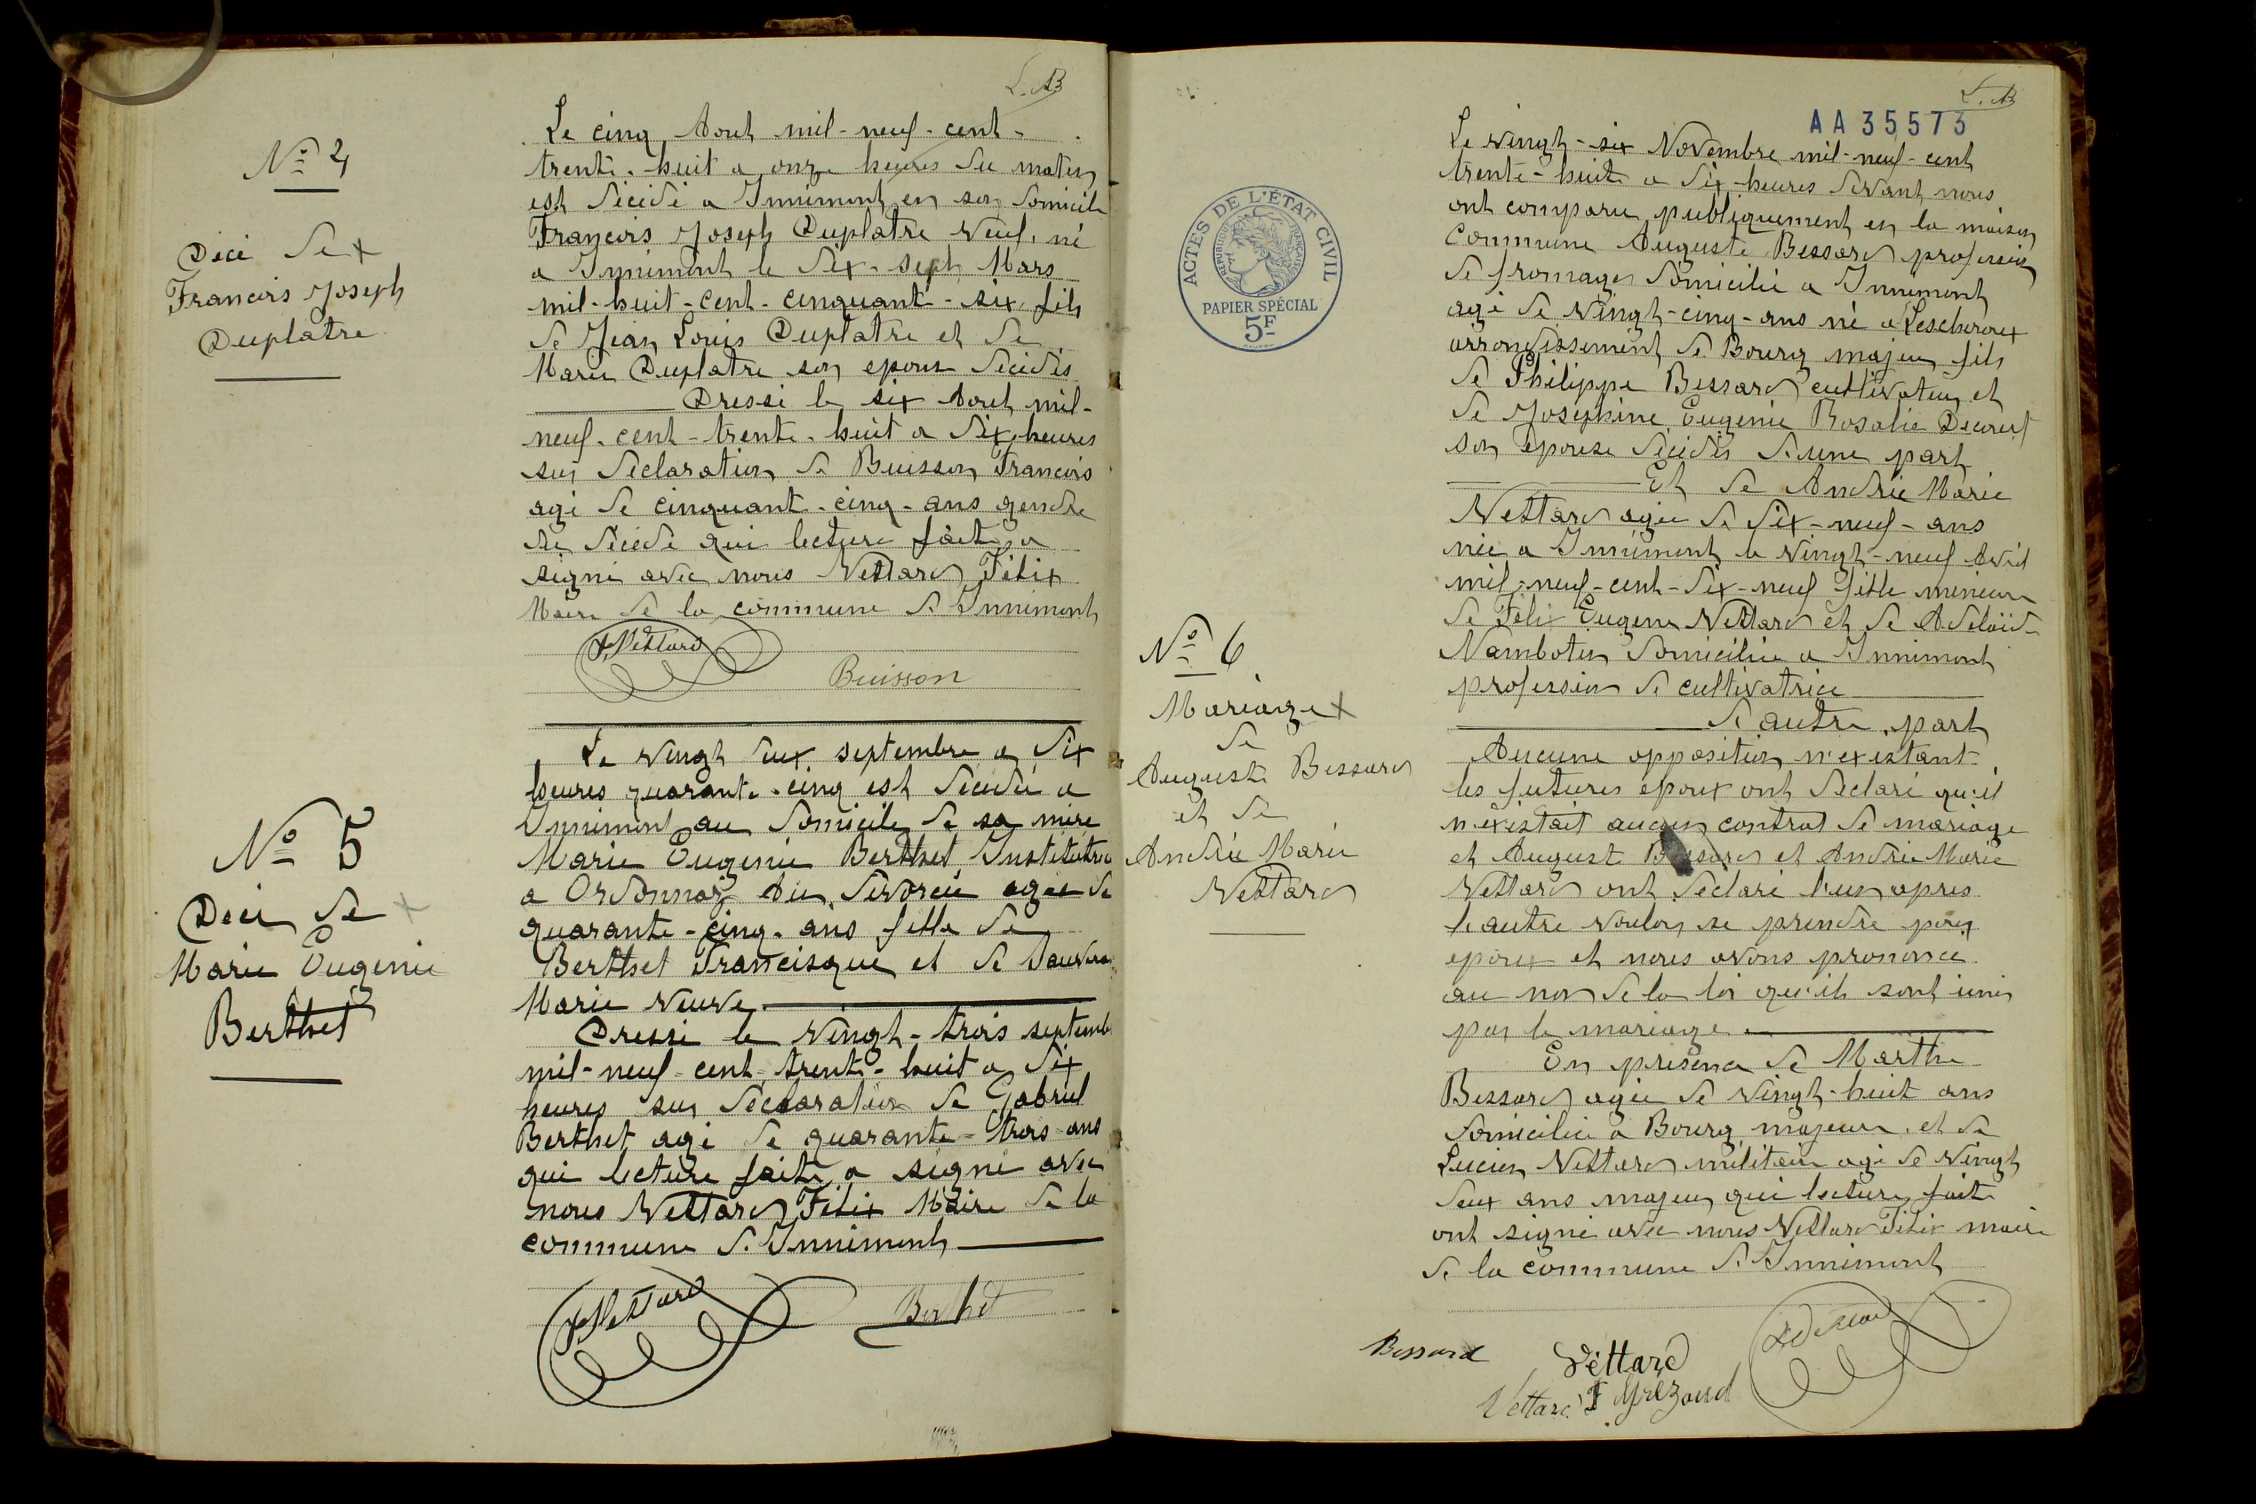 L. B
Nº 4
Déci de x
Francois Joseph
Duplatre
Le cinq Aout mil-neuf-cent-
trente-huit a onze heures du matin
est décédé a Innimont en son domicile
Francois Joseph Duplatre veuf, né
a Innimont le dix-sept Mars
mil-huit-cent-cinquante-six, fils
de Jean Louis Duplatre et de
Marie Duplatre son epouse décédés
Dressé le six Aout mil-
neuf-cent-trente-huit a dix heures
sur declaration de Buisson Francois
agé de cinquante-cinq-ans gendre
du décédé qui lecture faite a
signé avec nous Vettard Félix
Maire de la commune d'Innimont
F. Vettard
Buisson
Nº 5
Déci de x
Marie Eugenie
Berthet
Le vingt deux septembre a dix
heures quarante-cinq est décédée a
Innimont au domicile de sa mère
Marie Eugenie Berthet Institutrice
a Ordonnaz Ain, divorcée agée de
quarante-cinq-ans fille de
Berthet Francisque et de
Marie veuve
Dressé le vingt-trois septemb
mil-neuf-cent-trente-huit a dix
heures sur déclaration de Gabriel
Berthet agé de quarante-trois-ans
qui lecture faite a signé avec
nous Vettard Félix Maire de la
commune d'Innimont
F. Vettard
Berthet
L. B
AA 35573
ACTES DE L'ÉTAT CIVIL
RÉPUBLIQUE FRANÇAISE
PAPIER SPÉCIAL
5F
Nº 6
Mariage x
de
Auguste Bessard
et de
Andrée Marie
Vettard
Le vingt-six Novembre mil-neuf-cent
trente-huit a dix-heures devant nous
ont comparu publiquement en la maison
commune Auguste Bessard profession
de fromager domicilié a Innimont
agé de vingt-cinq-ans né a Lescheroux
arrondissement de Bourg majeur fils
de Philippe Bessard cultivateur et
de Josephine Eugenie Rosalie
son épouse décédés d'une part
Et de Andrée Marie
Vettard agée de dix-neuf-ans
née a Innimont le vingt-neuf Avril
mil-neuf-cent-dix-neuf fille mineure
de Félix Eugene Vettard et de Adelaïde
Nambotin domiciliée a Innimont
profession de cultivatrice
d'autre part
Aucune opposition n'existant
les futures époux ont déclaré qu'il
n'éxistait aucun contrat de mariage
et Auguste Bessard et Andrée Marie
Vettard ont déclaré l'un apres
l'autre vouloir se prendre pour
epoux et nous avons prononcé
au nom de la loi qu'ils sont unis
par le mariage
En présence de Marthe
Bessard agée de vingt-huit ans
domiciliée a Bourg majeure et de
Lucien Vettard militaire agé de vingt
deux ans majeur qui lecture faite
ont signé avec nous Vettard Félix maire
de la commune d'Innimont
Bessard
Vettard
Vettard